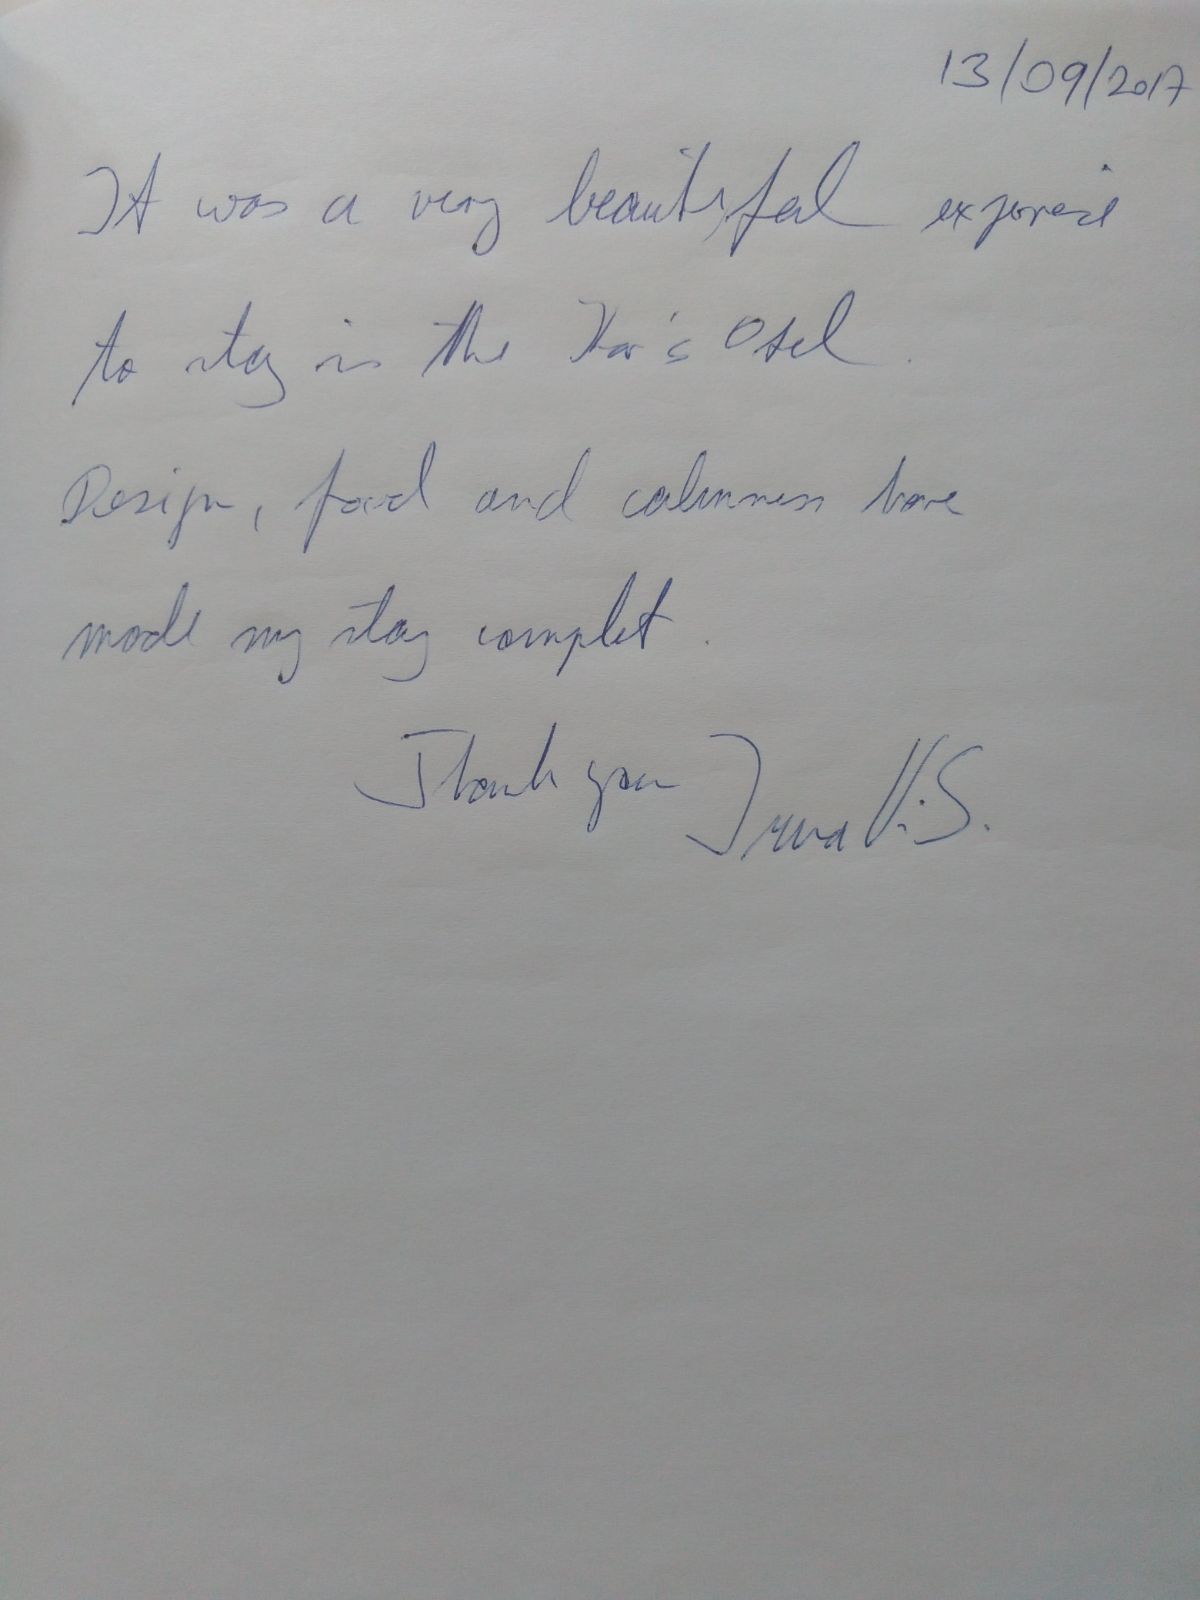 13/09/2017
It was a very beautiful
to stay in the Otel.
Design, food and calmness have
made my stay complet.
Thank you V.S.